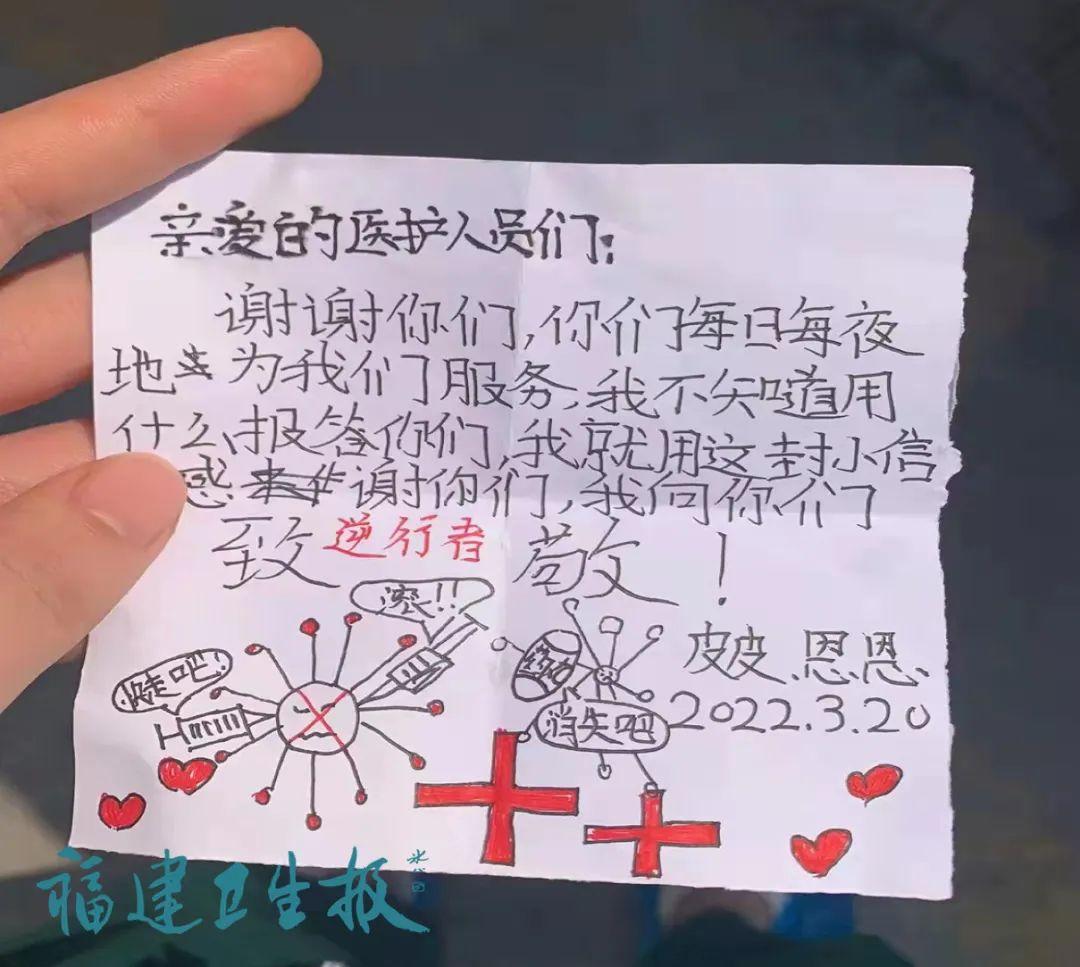 亲爱的医护人员们:
谢谢你们,你们每日每夜
地为我们服务,我不知道用
什么报答你们,我就用这封小信
感谢你们,我向你们
致逆行者敬!
滚!!
走吧!
消失吧
皮皮.恩恩.
2022.3.20
福建卫生报